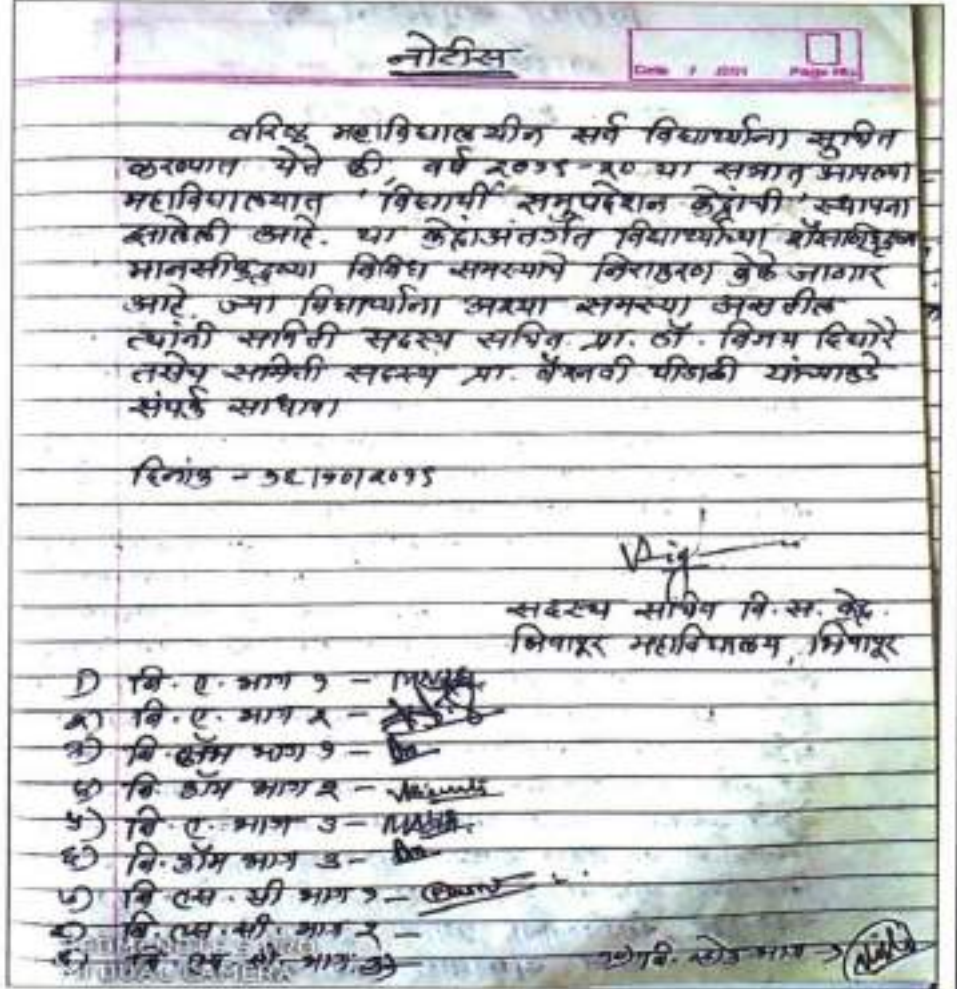 नोटीस
Date / /201 Page No.
वरिष्ठ महाविद्यालयीन सर्व विद्यार्थ्यांना सुचित
करण्यात येते की, वर्ष २०१९-२० या सत्रात आपल्या
महाविद्यालयात 'विद्यार्थी समुपदेशन केंद्राची' स्थापना
झालेली आहे. या केंद्राअंतर्गत विद्यार्थ्यांच्या
मानसीकदृष्ट्या विविध समस्याचे निराकरण केले जाणार
आहे. ज्या विद्यार्थ्यांना अश्या समस्या असतील
त्यांनी समिती सदस्य सचिव प्रा. डॉ. विजय दिघोरे
तसेच समिती सदस्य प्रा. वैष्णवी यांच्याकडे
संपर्क साधावा
दिनांक - १६/१०/२०१९
सदस्य सचिव वि. स. केंद्र.
भिवापूर महाविद्यालय, भिवापूर
१) बि. ए. भाग १ -
२) बि. ए. भाग २ -
३) बि. कॉम भाग १ -
४) बि. कॉम भाग २ -
५) बि. ए. भाग ३ -
६) बि. कॉम भाग ३ -
७) बि. एस. सी भाग १ -
८) बि. एस. सी. भाग २ -
९) बि. एस. सी. भाग ३
DUAL CAMERA